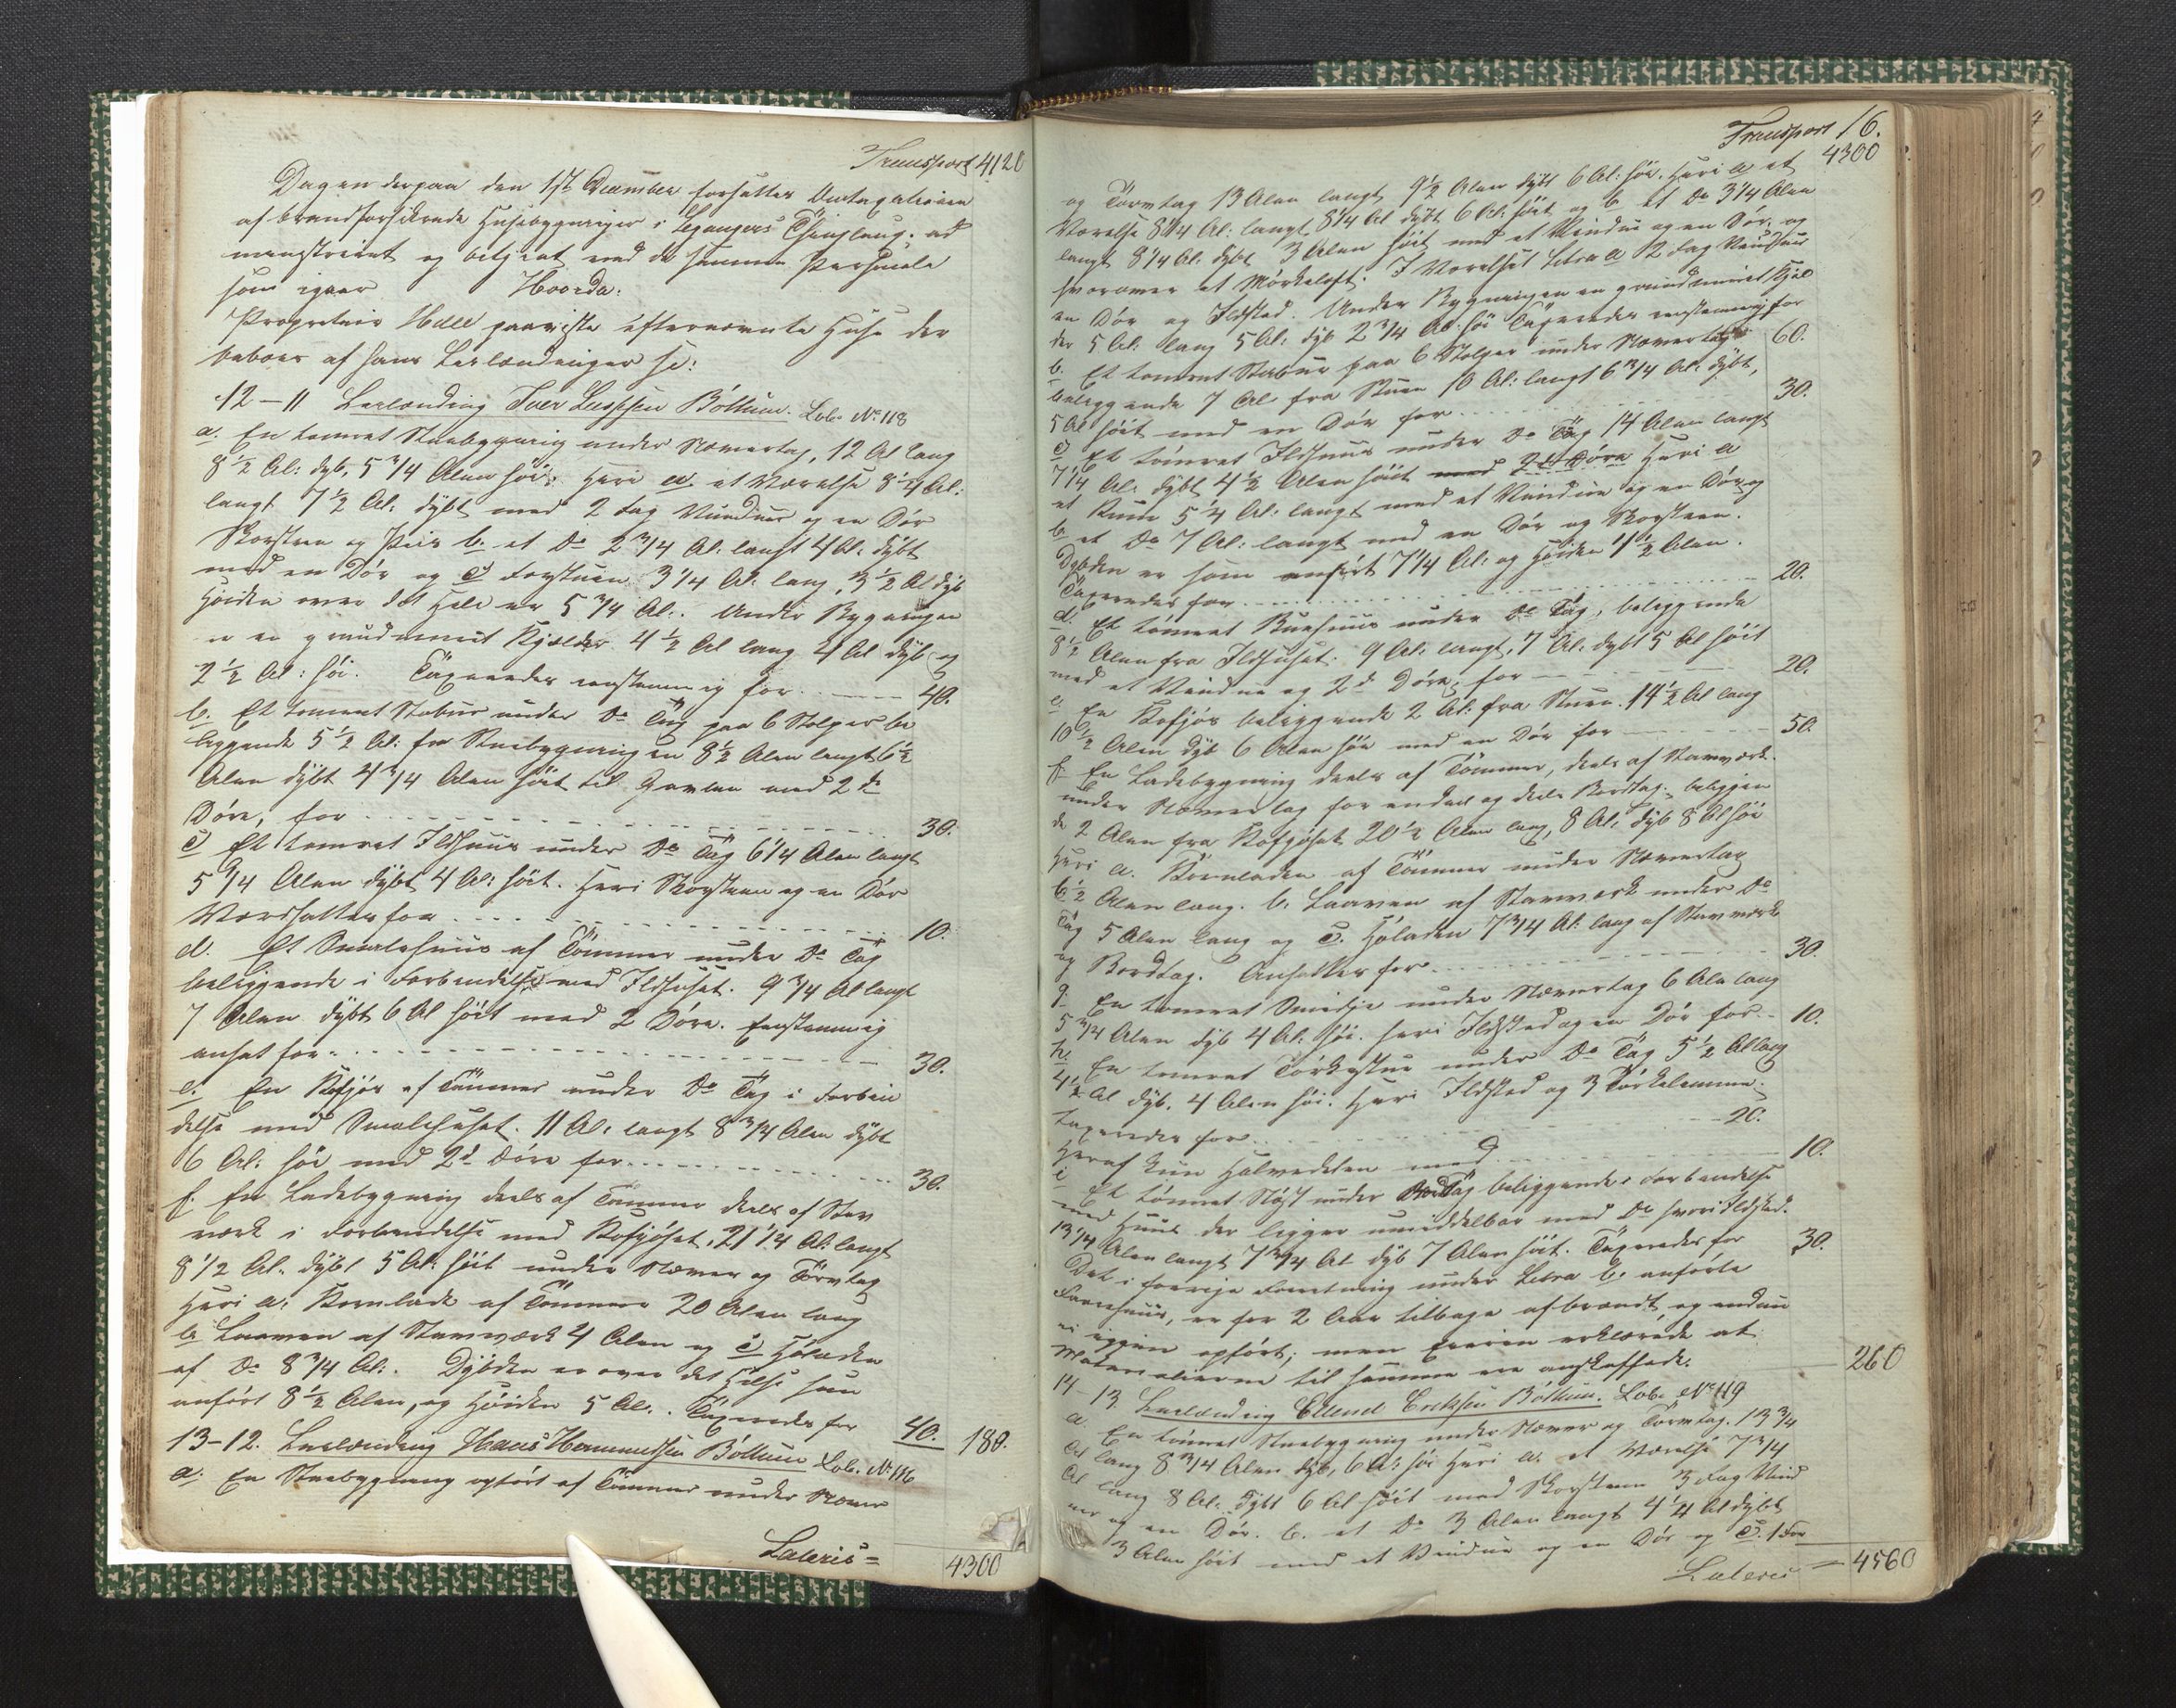 Transport 4120
Dagen derpaa den 1ste December forsattes Omtaxationen
af brandforsikrede Husebygninger i Leganger Thinglaug, ad
ministreret og betjent med de samme Personale
som igaar Hvorda:
Proprietair Hill paaviste efternævnte Huse der
beboes af hans Leilændinger s:
12 – 11 Leilænding Iver Larssen Böthun. Lob. No. 118
a. En tømret Stuebygning under Nævertag, 12 Al lang
8 1/2 Al: dyb, 5 3/4 Alen høi: Heri a et Værelse 8 1/4 Al:
langt 7 1/2 Al: dybt med 2 Fag Vinduer og en Dör
Skorsteen og Peis b. et Do 2 3/4 Al: langt 4 Al: dybt
med en Dör og c) Forstuen 3 1/4 Al: lang, 3 1/2 Al dyb
Høiden over det Hele er 5 3/4 Al:. Under Bygningen
er en grundmuret Kjælder 4 1/2 Al lang 4 Al dyb og
2 1/2 Al: høi. Taxeredes eenstemmig for 40.
b. Et tømret Stabur under Do Tag paa 6 Stolper be
liggende 5 1/2 Al: fra Stuebygningen 8 1/2 Alen langt 6 1/2
Alen dybt 4 3/4 Alen høit til Gavlen med 2de
Döre, for 30.
c) Et tømret Ildhuus under Do Tag 6 1/4 Alen langt
5 1/4 Alen dybt 4 Al: høit. Heri Skorsteen og en Dör
Værdsattes for 10.
d. Et Smalehuus af Tömmer under Do Tag
beliggende i Forbindelse med Ildhuset. 9 3/4 Al langt
7 Alen dybt 6 Al høit med 2 Döre. Eenstemmig
ansat for 30.
e. En Kofjös af Tömmer under Do Tag i Forbin
delse med Smalehuset. 11 Al: langt 8 3/4 Alen dybt
6 Al: høi med 2de Döre for 30.
f. En Ladebygning deels af Tömmer deels af Stav
værk i Forbindelse med Kofjöset, 21 1/4 Al: langt
8 1/2 Al: dybt 5 Al: høit under Næver og Törvtag
Heri a. Kornlade af Tömmer 20 Alen lang
b Laaven af Stavværk 4 Alen og c) Høladen
af Do 8 3/4 Al:. Dybden er over det Hele som
anført 8 1/2 Alen, og Høiden 5 Al:. Taxeredes for 40. 180.
13–12. Leilænding Hans Hermundsen Böthun Lob. No. 116
a. En Stuebygning opført af Tömmer under Næver
Lateris = 4300
16.
Transport 4300
og Törvtag 13 Alen langt 9 1/2 Alen dybt 6 Al: høi. Heri a et
Værelse 8 1/4 Al: langt, 8 1/4 Al dybt 6 Al: høit og b et Do 3 1/4 Alen
langt 8 1/4 Al: dybt 3 Alen høit med et Vindue og en Dör, og
hvorover et Mörkeloft. I Værelset Litra a 2 Fag Vinduer
en Dör og Ildsted. Under Bygningen en grundmuret Kjæl
der 5 Al: lang 5 Al: dyb 2 3/4 Al: høi Taxeredes eenstemmig for 60.
b. Et tømret Stabur paa 6 Stolper under Nævertag
beliggende 7 Al fra Stuen 10 Al: langt 6 3/4 Al: dybt,
5 Al høit med en Dör for 30.
c) Et tömret Ildhuus under Do Tag 14 Alen langt
7 1/4 Al: dybt 4 1/2 Alen høit med 2de Döre Heri a
et Rum 5 1/4 Al: langt med et Vindue og en Dör og
b et Do 7 Al: langt med en Dör og Skorsteen.
Dybden er som anført 7 1/4 Al: og Høiden 4 1/2 Alen.
Taxeredes for 20.
d. Et tömret Buehuus under Do Tag, beliggende
8 1/2 Alen fra Ildhuset. 9 Al: langt, 7 Al: dybt 5 Al høit
med et Vindue og 2de Döre, for 20.
e. En Kofjös beliggende 2 Al: fra Stuen. 14 1/2 Al lang
10 1/2 Alen dyb 6 Alen høi med en Dör for 50.
f. En Ladebygning deels af Tömmer, deels af Stavværk
under Nævertag for endeel og deels Bordtag, beliggen
de 2 Alen fra Kofjöset 20 1/2 Alen lang, 8 Al: dyb 8 Al høi
Heri a. Kornladen af Tömmer under Nævertag
6 1/2 Alen lang. b. Laaven af Stavværk under Do
Tag 5 Alen lang og c. Høladen 7 3/4 Al: lang af Stavværk
og Bordtag. Ansattes for 30.
g. En tømret Smidje under Nævertag 6 Alen lang
5 3/4 Alen dyb 4 Al: høi. heri Ildsted og en Dör for 10.
h. En tømret Törkestue under Do Tag 5 1/2 Al lang
4 1/2 Al dyb. 4 Alen høi. Heri Ildsted og 3 Törkelemme.
Taxeredes for 20.
Heraf kun Halvedelen med 10.
i Et tömret Nøst under Bord Tag beliggende i Forbindelse
med Huus der ligger umiddelbar med Do hvori Ildsted.
13 1/4 Alen langt 7 3/4 Al dyb 7 Alen høit. Taxeredes for 30.
Det i forrige Forretning under Litra b. anførte
Faarehuus, er for 2 Aar tilbage afbrændt og endnu
ei igjen opført; men Eieren erklærede at
Materialierne til samme ere anskaffede. 260
14 – 13. Leilænding Ellend Erichsen Böthun. Lob. No. 119
a. En tömret Stuebygning under Næver og Törvtag. 13 3/4
Al lang 8 3/4 Alen dyb, 6 Al: høi Heri a. et Værelse 7 3/4
Al lang 8 Al: dybt 6 Al høit med Skorsteen 3 Fag Vind
uer og en Dör. b. et Do 3 Alen langt 4 1/4 Al dybt
3 Alen høit med et Vindue og en Dör og c). 1 For
Lateris = 4560